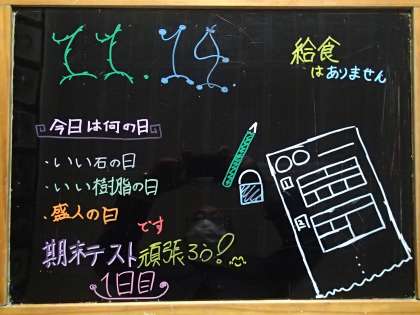 11.14.
給食
はありません
今日は何の日
・いい石の日
・いい樹脂の日
盛人の日
です
期末テスト頑張ろう!
1日目